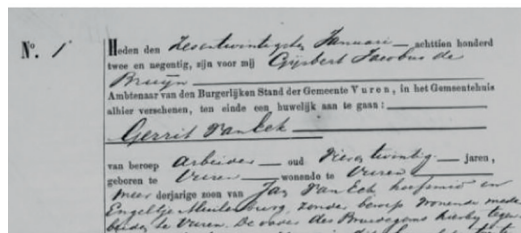 No. 1
Heden den Zesentwintigsten Januari achttien honderd
twee en negentig, zijn voor mij Gijsbert Jacobus de
Bruijn
Ambtenaar van den Burgerlijken Stand der Gemeente Vuren, in het Gemeentehuis
alhier verschenen, ten einde een huwelijk aan te gaan:
Gerrit van Eck
van beroep Arbeider oud Vierentwintig jaren,
geboren te Vuren wonende te Vuren
meerderjarige zoon van Jan van Eck en
Engeltje zonder beroep wonende mede
te Vuren. De vader des Bruidegoms hierbij tegen